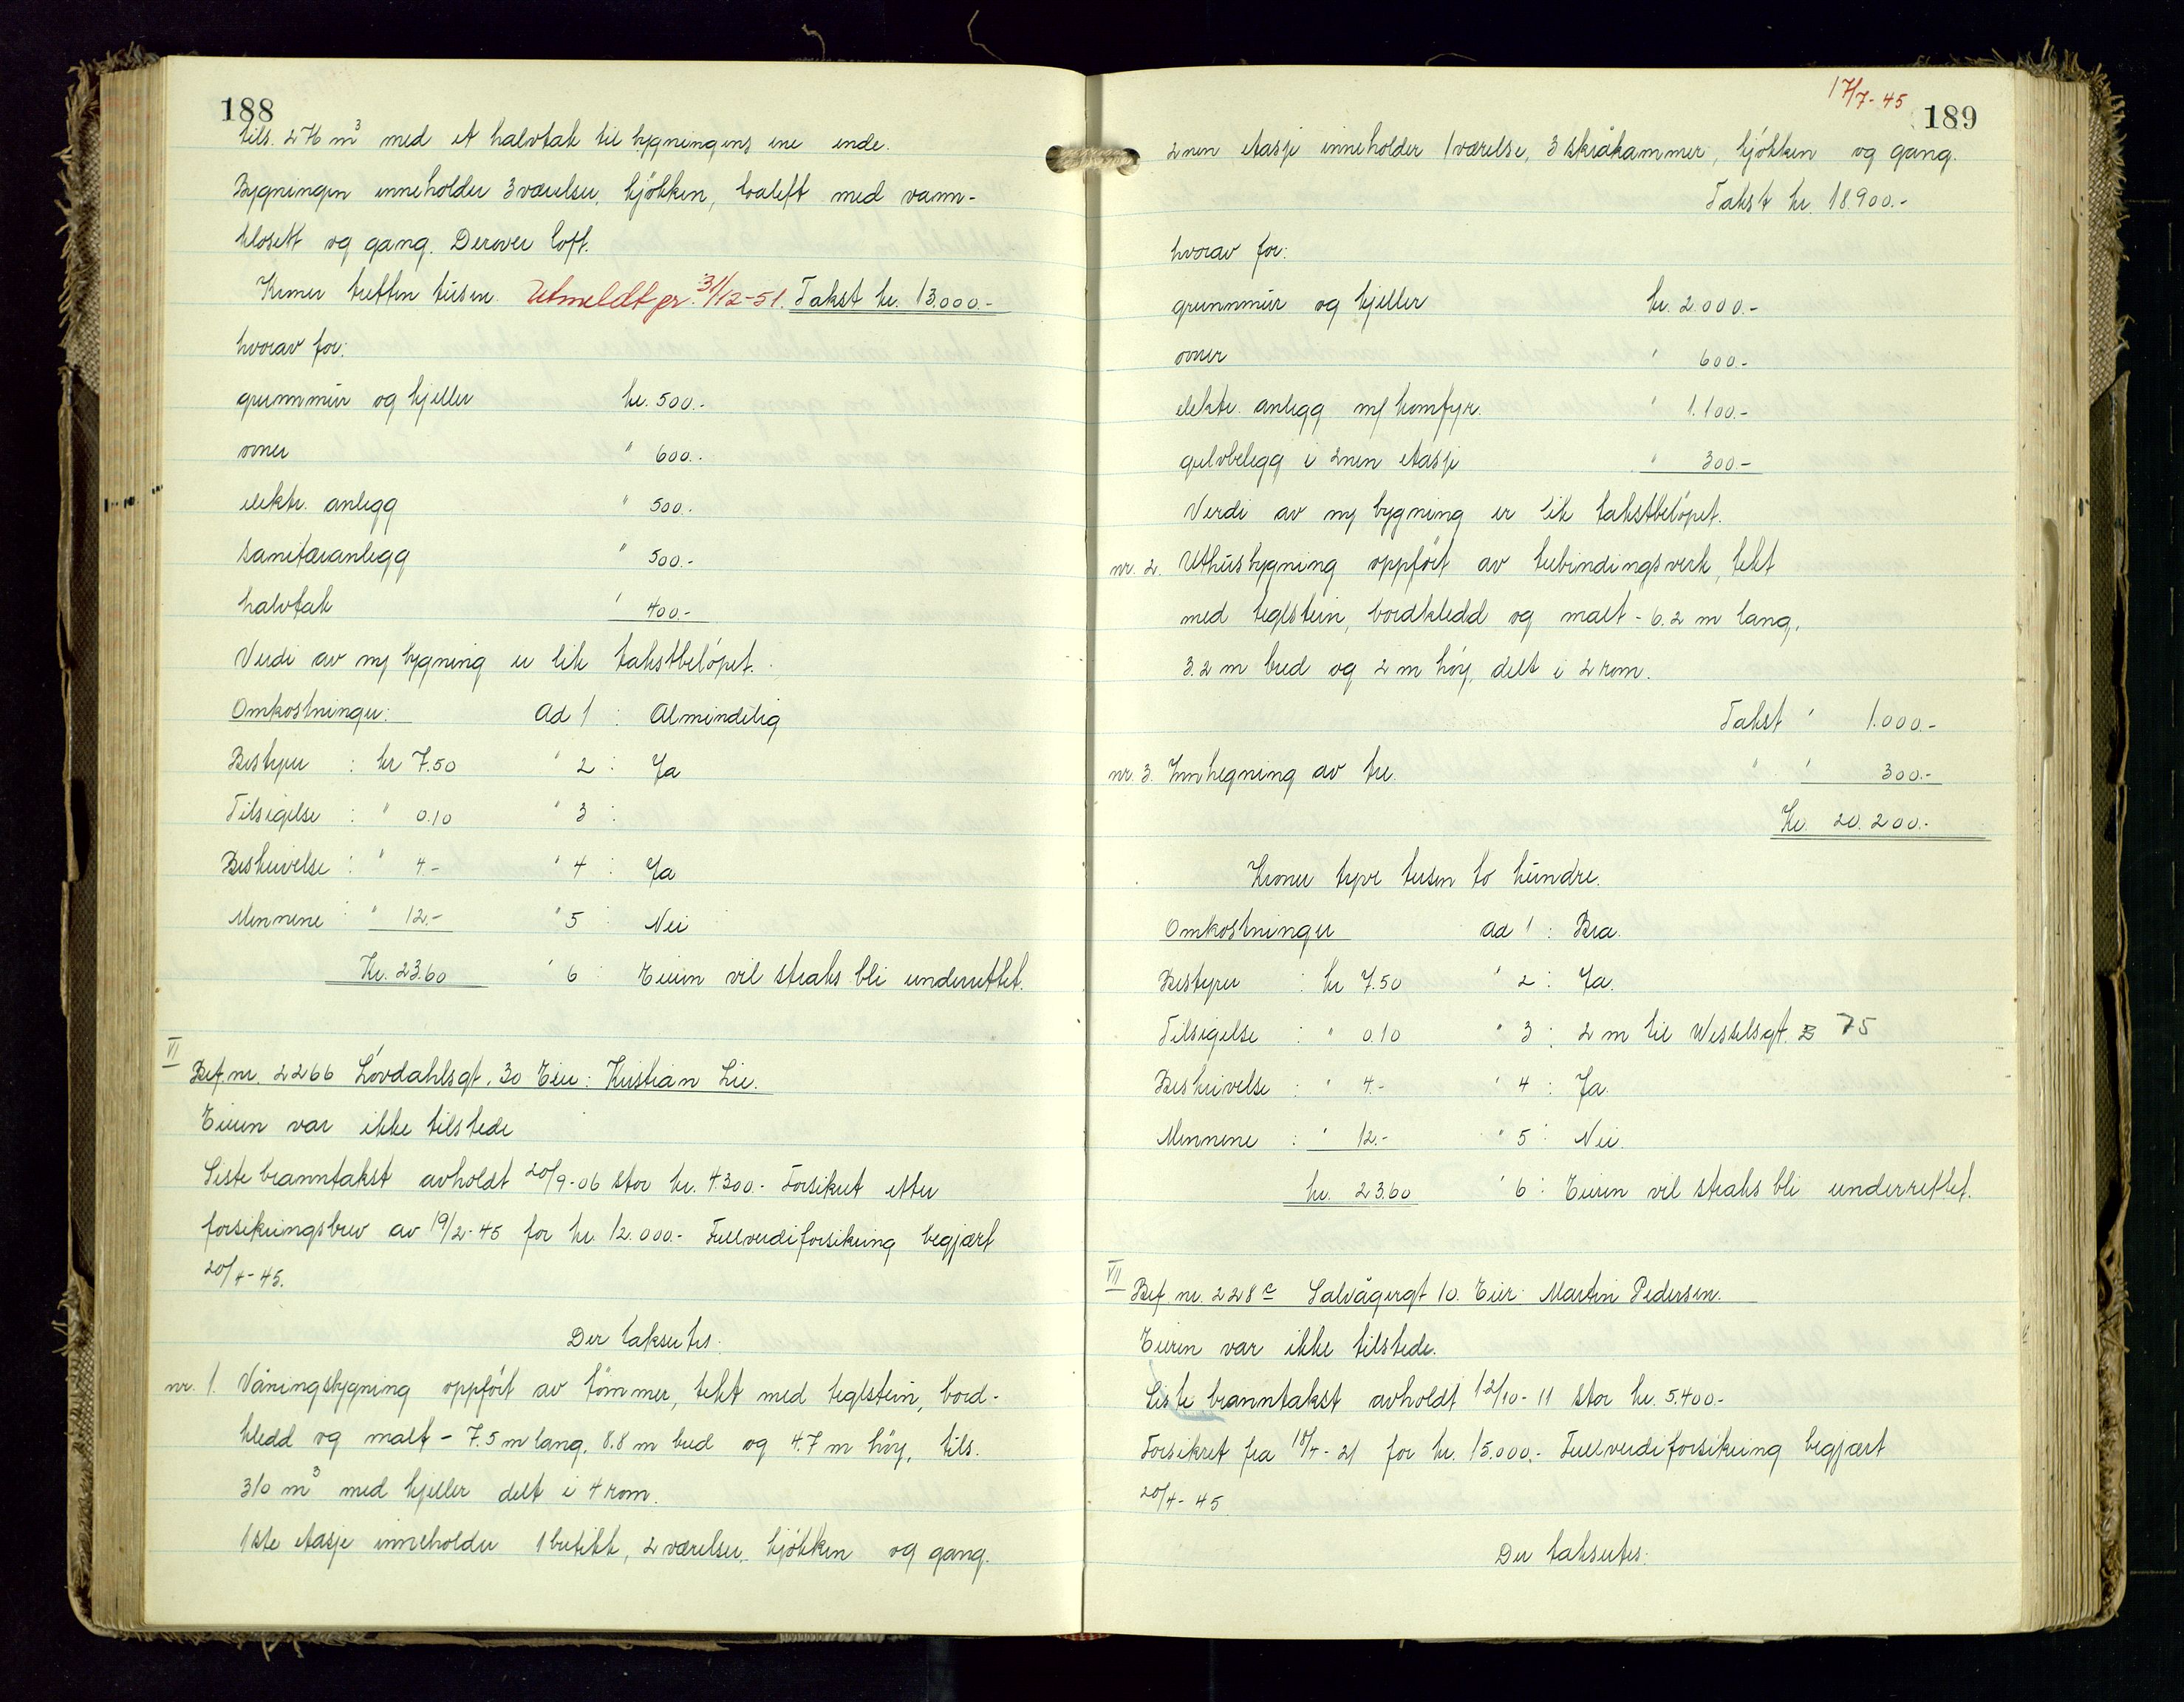 188
tils. 276 m³ med et halvtak til bygningens ene ende.
Bygningen inneholder 3 værelser, kjøkken, toalett med vann-
klosett og gang. Derover loft.
Kroner tretten tusen. Utmeldt pr. 31/12-51. Takst kr. 13.000.-
hvorav for:
grunnmur og kjeller kr. 500.-
ovner " 600.-
elektr. anlegg " 500.-
sanitæranlegg " 500.-
halvtak " 400.-
Verdi av ny bygning er lik takstbeløpet.
Omkostninger: Ad 1 : Almindelig
Bestyrer : kr 7.50 " 2 : Ja
Tilsigelse : " 0.10 " 3 :
Beskrivelse : " 4.- " 4 : Ja
Mennene : " 12.- " 5 : Nei
Kr. 23.60 " 6 : Eieren vil straks bli underrettet.
VI
Bef. nr. 2266 Lövdahlsgt. 30 Eier: Kristian Lie.
Eieren var ikke tilstede
Siste branntakst avholdt 20/9-06 stor kr. 4.300.- Forsikret etter
forsikringsbrev av 19/2-45 for kr. 12.000.- Fullverdiforsikring begjært
20/4-45.
Der taksertes:
nr. 1. Våningsbygning oppfört av tömmer, tekt med teglstein, bord-
kledd og malt - 7.5 m lang, 8.8 m bred og 4.7 m höy, tils.
310 m³ med kjeller delt i 4 rom.
1ste etasje inneholder 1 butikk, 2 værelser, kjökken og gang.
17/7-45
189
2nen etasje inneholder 1 værelse, 3 skråkammer, kjökken og gang.
Takst kr. 18.900.-
hvorav for:
grunnmur og kjeller kr. 2.000.-
ovner " 600.-
elektr. anlegg m/ komfyr. " 1.100.-
gulvbelegg i 2nen etasje " 300.-
Verdi av ny bygning er lik takstbelöpet.
nr. 2. Uthusbygning oppfört av trebindingsverk, tekt
med teglstein, bordkledd og malt - 6.2 m lang,
3.2 m bred og 2 m höy, delt i 2 rom.
Takst " 1.000.-
nr. 3. Innhegning av tre. " " 300.-
Kr. 20.200.-
Kroner tyve tusen to hundre.
Omkostninger ad 1 : Bra.
Bestyrer : kr 7.50 " 2 : Ja.
Tilsigelse : " 0.10 " 3 : 2 m til Wesselsgt. 75
Beskrivelse : " 4.- " 4 : Ja.
Mennene : " 12.- " 5 : Nei.
kr. 23.60 " 6 : Eieren vil straks bli underrettet.
VII
Bef. nr. 228 e Salvågergt 10. Eier: Martin Pedersen.
Eieren var ikke tilstede.
Siste branntakst avholdt 12/10-11 stor kr. 5.400.-
Forsikret fra 18/4-21 for kr. 15.000.- Fullverdiforsikring begjært
20/4-45
Der taksertes: